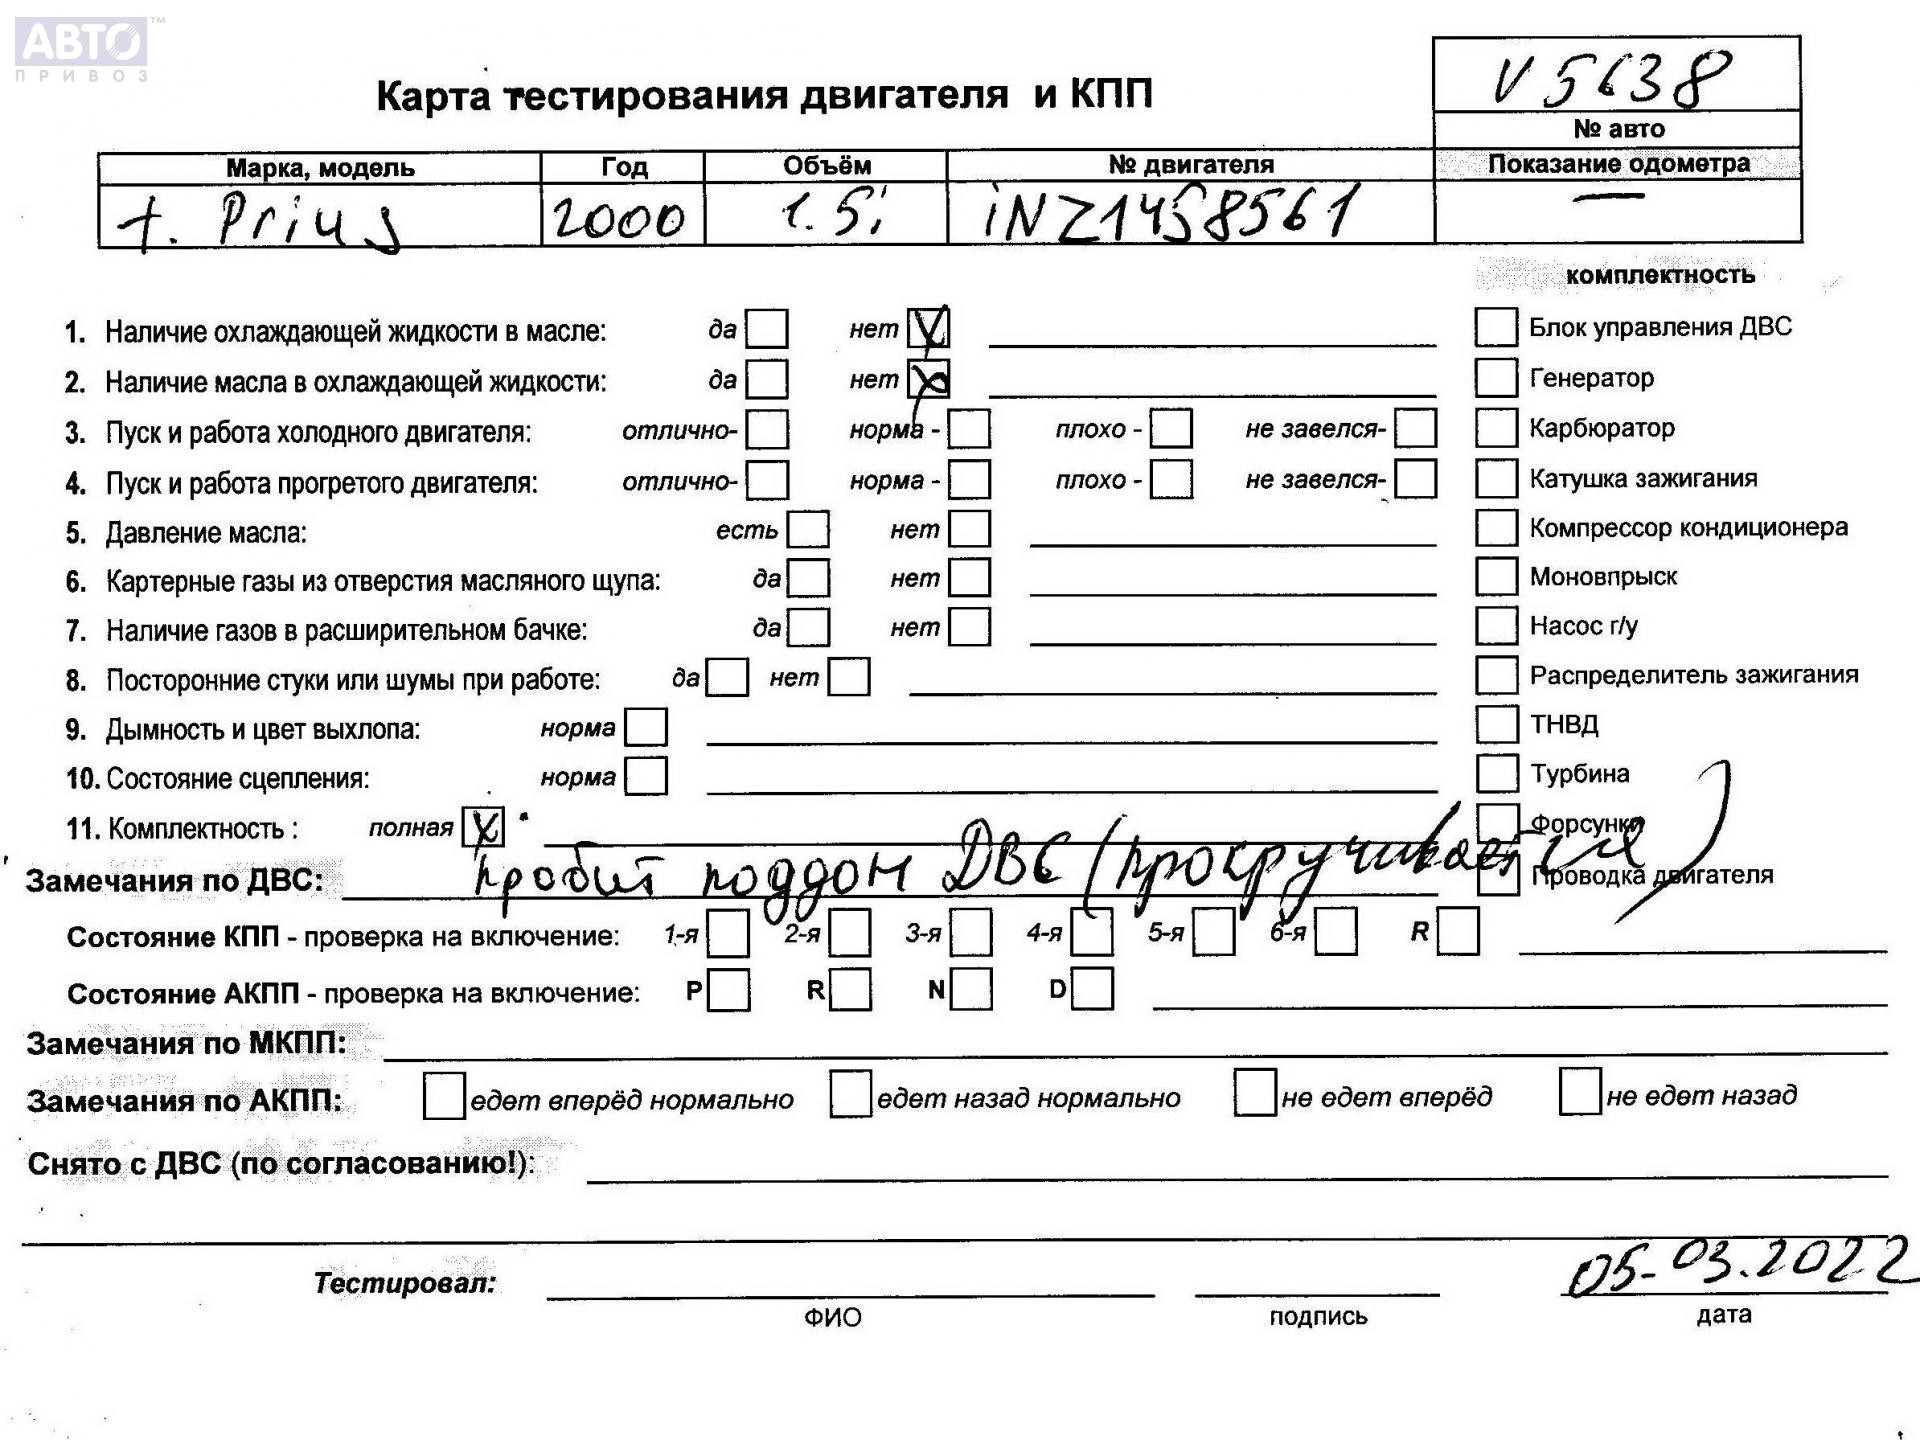 АВТО™
ПРИВОЗ
V5638
Карта тестирования двигателя и КПП
№ авто
Марка, модель Год Объём № двигателя Показание одометра
t. Prius 2000 1.5i 1NZ1458561 —
комплектность
1. Наличие охлаждающей жидкости в масле: да нет Блок управления ДВС
2. Наличие масла в охлаждающей жидкости: да нет Генератор
3. Пуск и работа холодного двигателя: отлично- норма - плохо - не завелся- Карбюратор
4. Пуск и работа прогретого двигателя: отлично- норма - плохо - не завелся- Катушка зажигания
5. Давление масла: есть нет Компрессор кондиционера
6. Картерные газы из отверстия масляного щупа: да нет Моновпрыск
7. Наличие газов в расширительном бачке: да нет Насос г/у
8. Посторонние стуки или шумы при работе: да нет Распределитель зажигания
9. Дымность и цвет выхлопа: норма ТНВД
10. Состояние сцепления: норма Турбина
11. Комплектность : полная Форсунки
Замечания по ДВС: пробит поддон ДВС (прокручивается) Проводка двигателя
Состояние КПП - проверка на включение: 1-я 2-я 3-я 4-я 5-я 6-я R
Состояние АКПП - проверка на включение: P R N D
Замечания по МКПП:
Замечания по АКПП: едет вперёд нормально едет назад нормально не едет вперёд не едет назад
Снято с ДВС (по согласованию!):
Тестировал: 05-03.2022
ФИО подпись дата